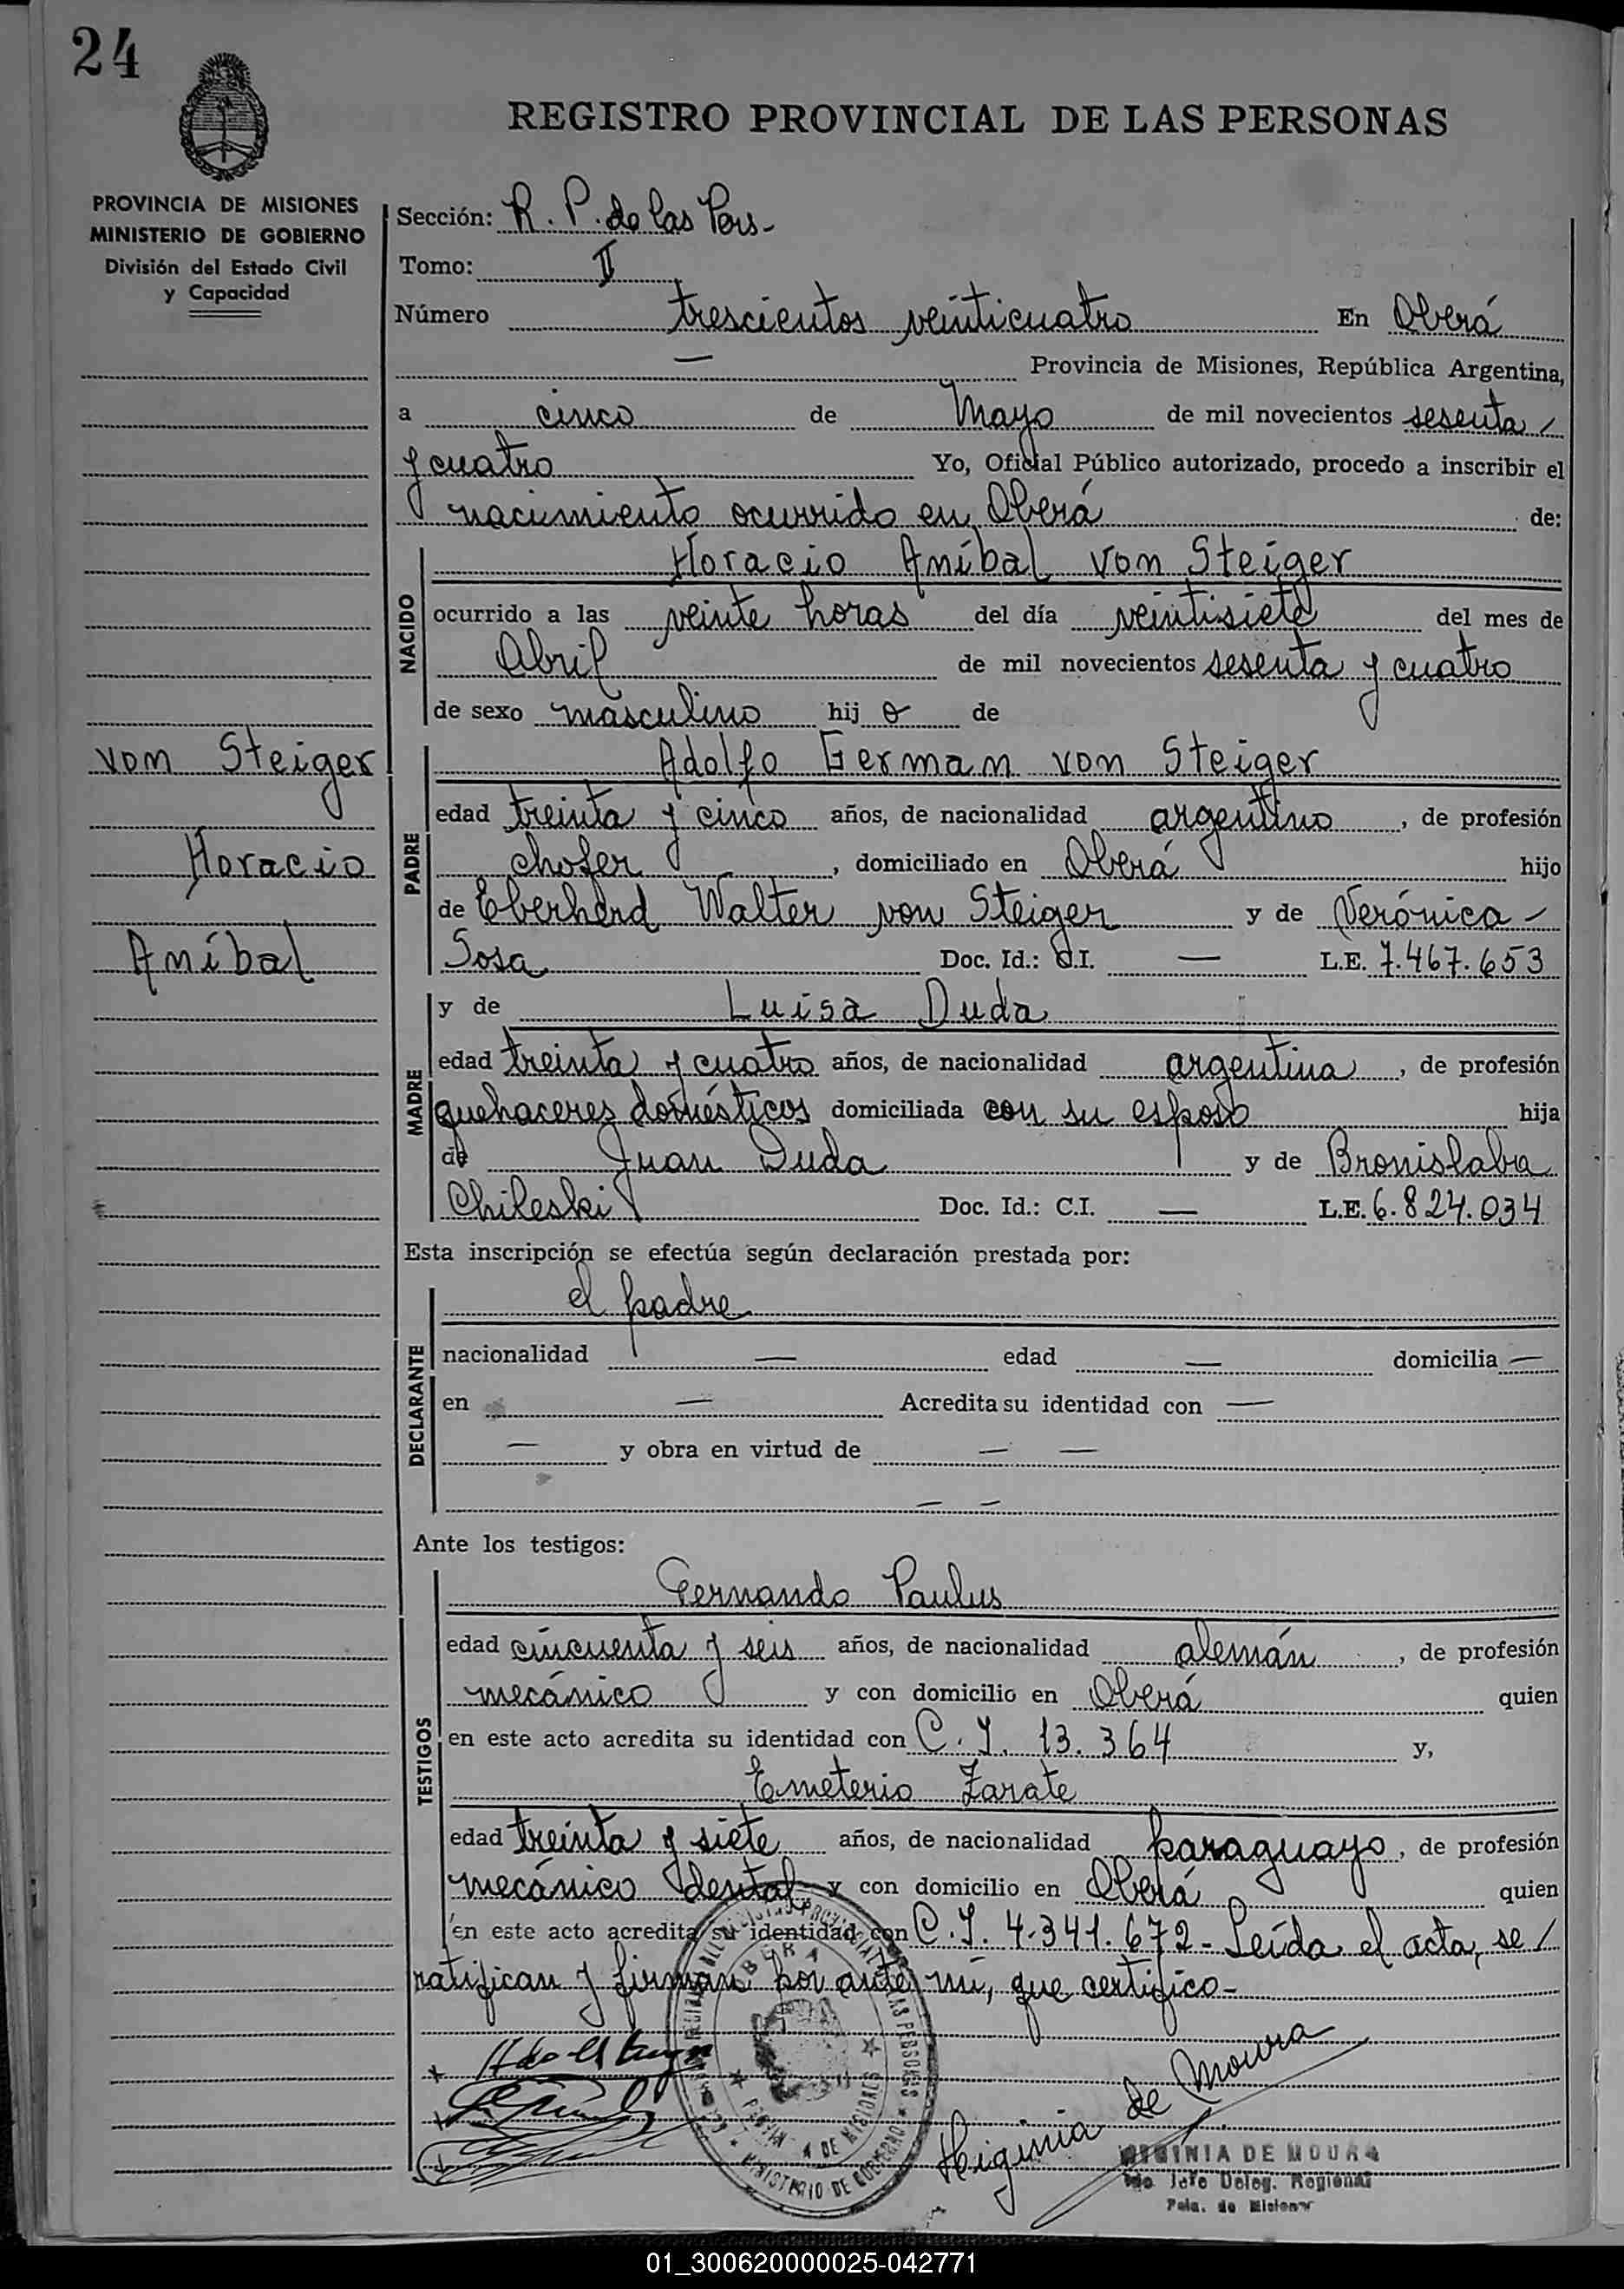 24
REGISTRO PROVINCIAL DE LAS PERSONAS
PROVINCIA DE MISIONES
MINISTERIO DE GOBIERNO
División del Estado Civil
y Capacidad
Sección: R. P. de las Pers-
Tomo: II
Número trescientos veinticuatro En Oberá
— Provincia de Misiones, República Argentina,
a cinco de Mayo de mil novecientos sesenta /
y cuatro Yo, Oficial Público autorizado, procedo a inscribir el
nacimiento ocurrido en Oberá de:
NACIDO
Horacio Aníbal von Steiger
ocurrido a las veinte horas del día veintisiete del mes de
Abril de mil novecientos sesenta y cuatro
de sexo masculino hij o de
von Steiger
Horacio
Aníbal
PADRE
Adolfo German von Steiger
edad treinta y cinco años, de nacionalidad argentino, de profesión
chofer, domiciliado en Oberá hijo
de Eberherd Walter von Steiger y de Verónica -
Sosa Doc. Id.: C.I. — L.E. 7.467.653
MADRE
y de Luisa Duda
edad treinta y cuatro años, de nacionalidad argentina, de profesión
quehaceres domésticos domiciliada con su esposo hija
de Juan Duda y de Bronislaba
Chileski Doc. Id.: C.I. — L.E. 6.824.034
Esta inscripción se efectúa según declaración prestada por:
DECLARANTE
el padre
nacionalidad — edad — domicilia —
en — Acredita su identidad con —
— y obra en virtud de — —
— —
Ante los testigos:
TESTIGOS
Fernando Paulus
edad cincuenta y seis años, de nacionalidad alemán, de profesión
mecánico y con domicilio en Oberá quien
en este acto acredita su identidad con C. I. 13.364 y,
Emeterio Zarate
edad treinta y siete años, de nacionalidad paraguayo, de profesión
mecánico dental, y con domicilio en Oberá quien
en este acto acredita su identidad con C. I. 4.341.672- Leída el acta, se /
ratifican y firman por ante mí, que certifico-
Higinia de Moura
HIGINIA DE MOURA
Jefe Deleg. Regional
Pcia. de Misiones
OBERA
MINISTERIO DE GOBIERNO
01_300620000025-042771